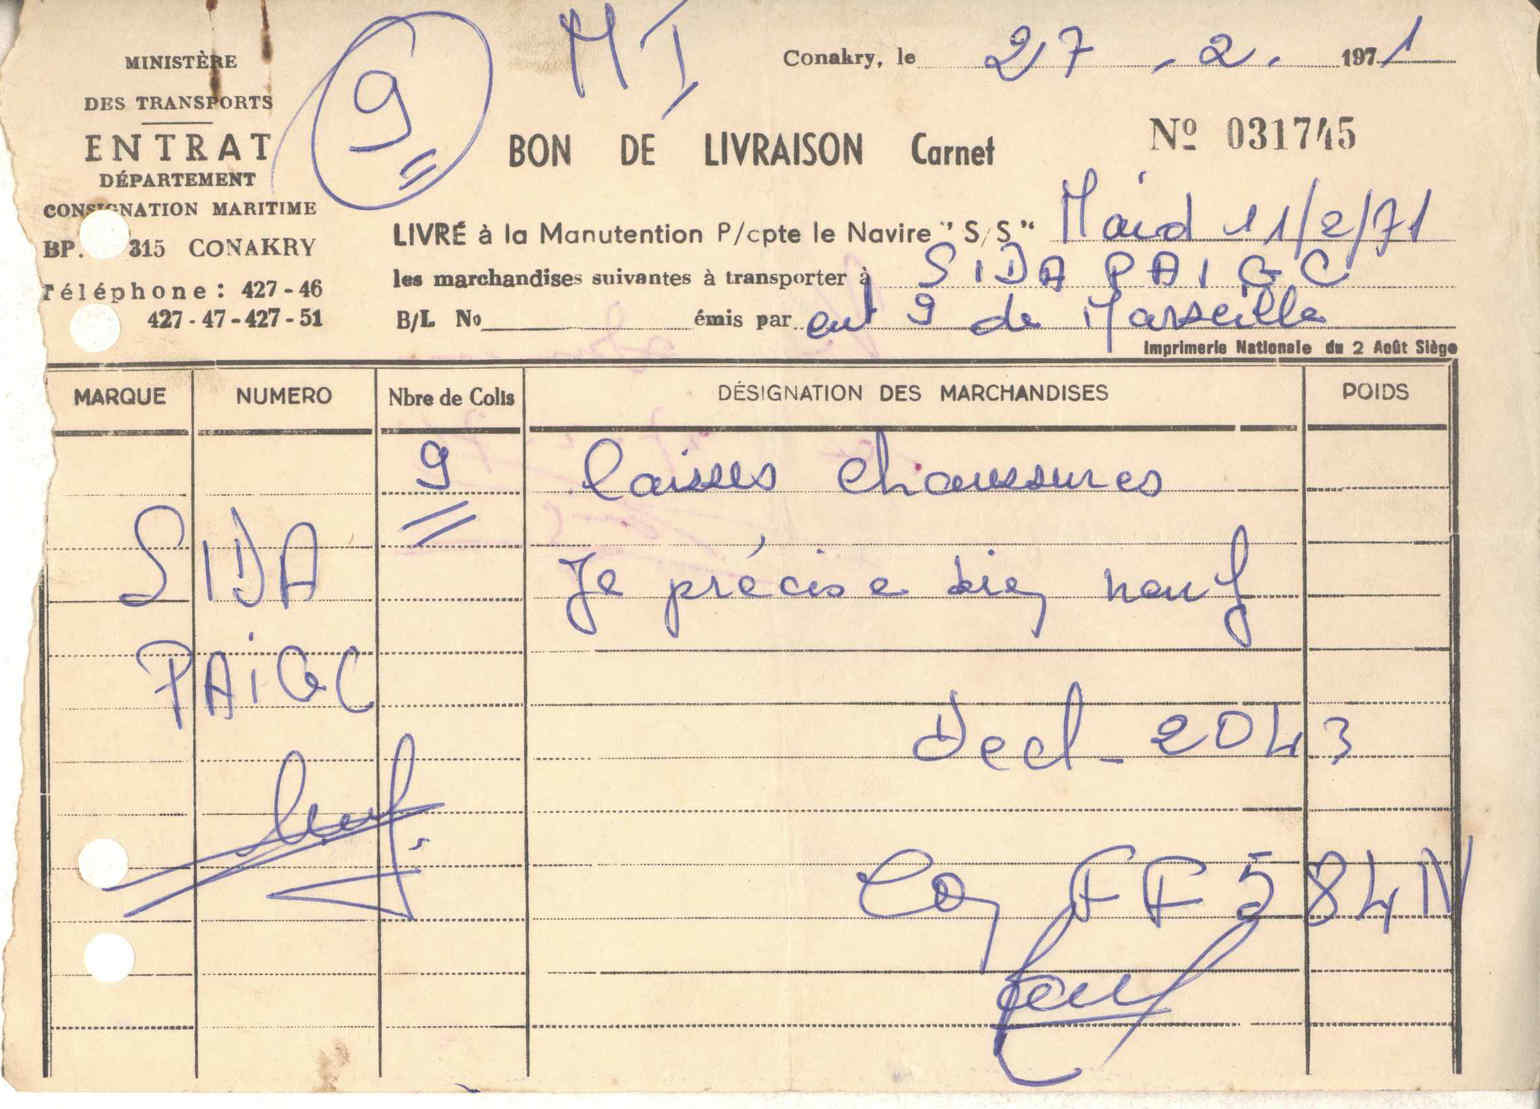 MINISTÈRE
DES TRANSPORTS
ENTRAT
DÉPARTEMENT
CONSIGNATION MARITIME
BP. 315 CONAKRY
Téléphone : 427-46
427-47-427-51
9
M I
Conakry, le 27 . 2 . 1971
BON DE LIVRAISON Carnet
Nº 031745
LIVRÉ à la Manutention P/cpte le Navire "S/S" 11/2/71
les marchandises suivantes à transporter à SIDA PAIGC
B/L No émis par ent 9 de Marseille
Imprimerie Nationale du 2 Août Siège
MARQUE NUMERO Nbre de Colis DÉSIGNATION DES MARCHANDISES POIDS
9 Caisses chaussures
SIDA Je précise bien neuf
PAIGC
Decl - 2043
FF 584N